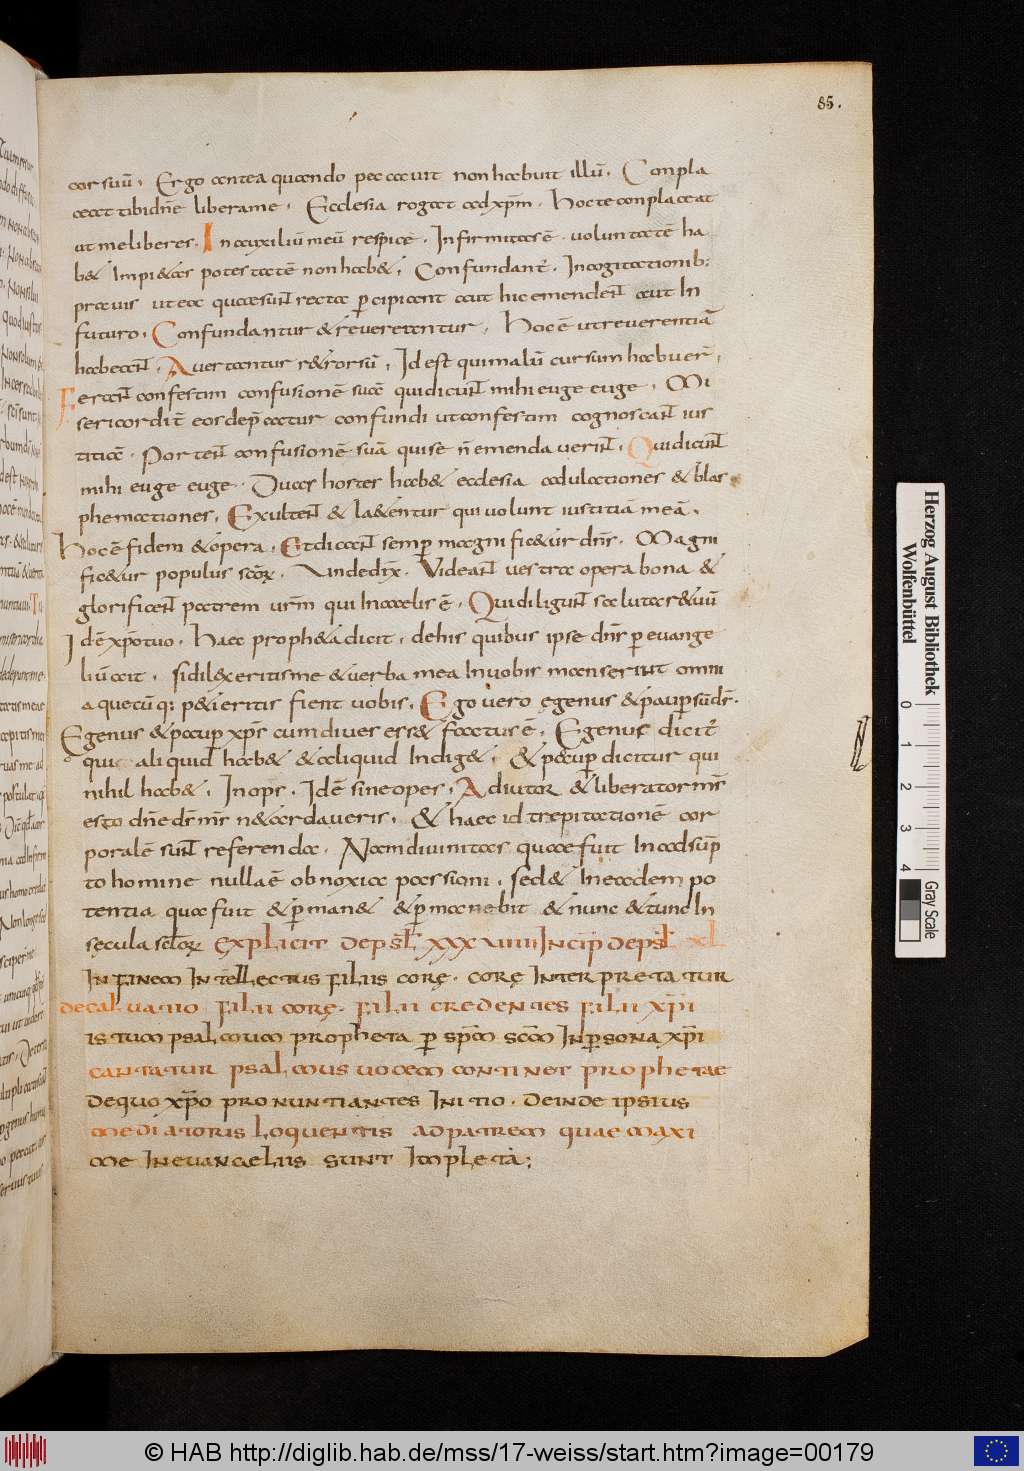 85.
cor suū. Ergo antea quando peccauit non habuit illū. Conpla
ceat tibi dn̄e liberame. Ecclesia rogat ad xp̄m. Hoc te conplaceat
ut me liberes. In auxiliū meū respice. Infirmitas ē. voluntatē ha
b& Impi&as potestatē non hab&. Confundant̄. In cogitationib:
prauis ut ea quae sunt recta p̲cipiant aut hic emendent aut In
futuro. Confundantur & reuereantur. Hoc ē ut reuerentiā
habeant. Auertantur r&rorsū. Id est qui malū cursum habuer̄.
Ferant confestim confusionē suā qui dicunt mihi euge euge. Mi
sericordit̄ eos dep̄catur confundi ut confestim cognoscant ius
titiā. Portent confusionē suā qui se n̄ emendauerint. Qui dicunt
mihi euge euge. Duas hostes hab& ecclesia adulationes & blas
phemationes. Exultent & la&entur qui uolunt iustitiā meā.
Hoc ē fidem & opera. Et dicant semp̲ magnific&ur dn̄s. Magni
fic&ur populus sc̄oꝝ. Unde dix̄. Videant uestra opera bona &
glorificent patrem ur̄m qui In caelis ē. Qui diligunt salutar& uū
Id ē xp̄o tuo. Haec proph&a dicit. de his quibus ipse dn̄s p̲ euange
liū ait. si dil&eritis me & uerba mea In uobis manserint omni
a quecūq: p&ieritis fient uobis. Ego uero egenus & paup̲ sū dr̄.
Egenus & paup̲ xp̄s cum diues ess& factus ē. Egenus dicit̄
qui aliquid hab& & aliquid Indig&. & paup̲ dicitur qui
nihil hab&. Inops. Id ē sine opes. Adiutor & liberator m̄s
esto dn̄e dr̄ m̄s n& tardaueris. & haec id trepitationē cor
poralē sunt referenda. Nam diuinitas quae fuit In adsūp
to homine nulla ē obnoxia passioni. sed & In eadem po
tentia qua fuit & p̲man& & p̲manebit & nunc & tunc In
sęcula sc̄loꝝ Explicit de psl̄ XXXVIIII Incip̄ de psl̄ XL
In finem Intellectus filiis corę. corę Interpretatur
decaluatio filii corę. filii credentes filii xp̄i
istum psalmum propheta p̲ sp̄m sc̄m In p̲sona xp̄i
cantatur psalmus uocem continet prophetae
de quo xp̄o pronuntiantes Initio. deinde ipsius
mediatoris loquentis ad patrem quae maxi
me In euangeliis sunt Impleta;
Herzog August Bibliothek
Wolfenbüttel
0 1 2 3 4
Gray Scale
© HAB http://diglib.hab.de/mss/17-weiss/start.htm?image=00179